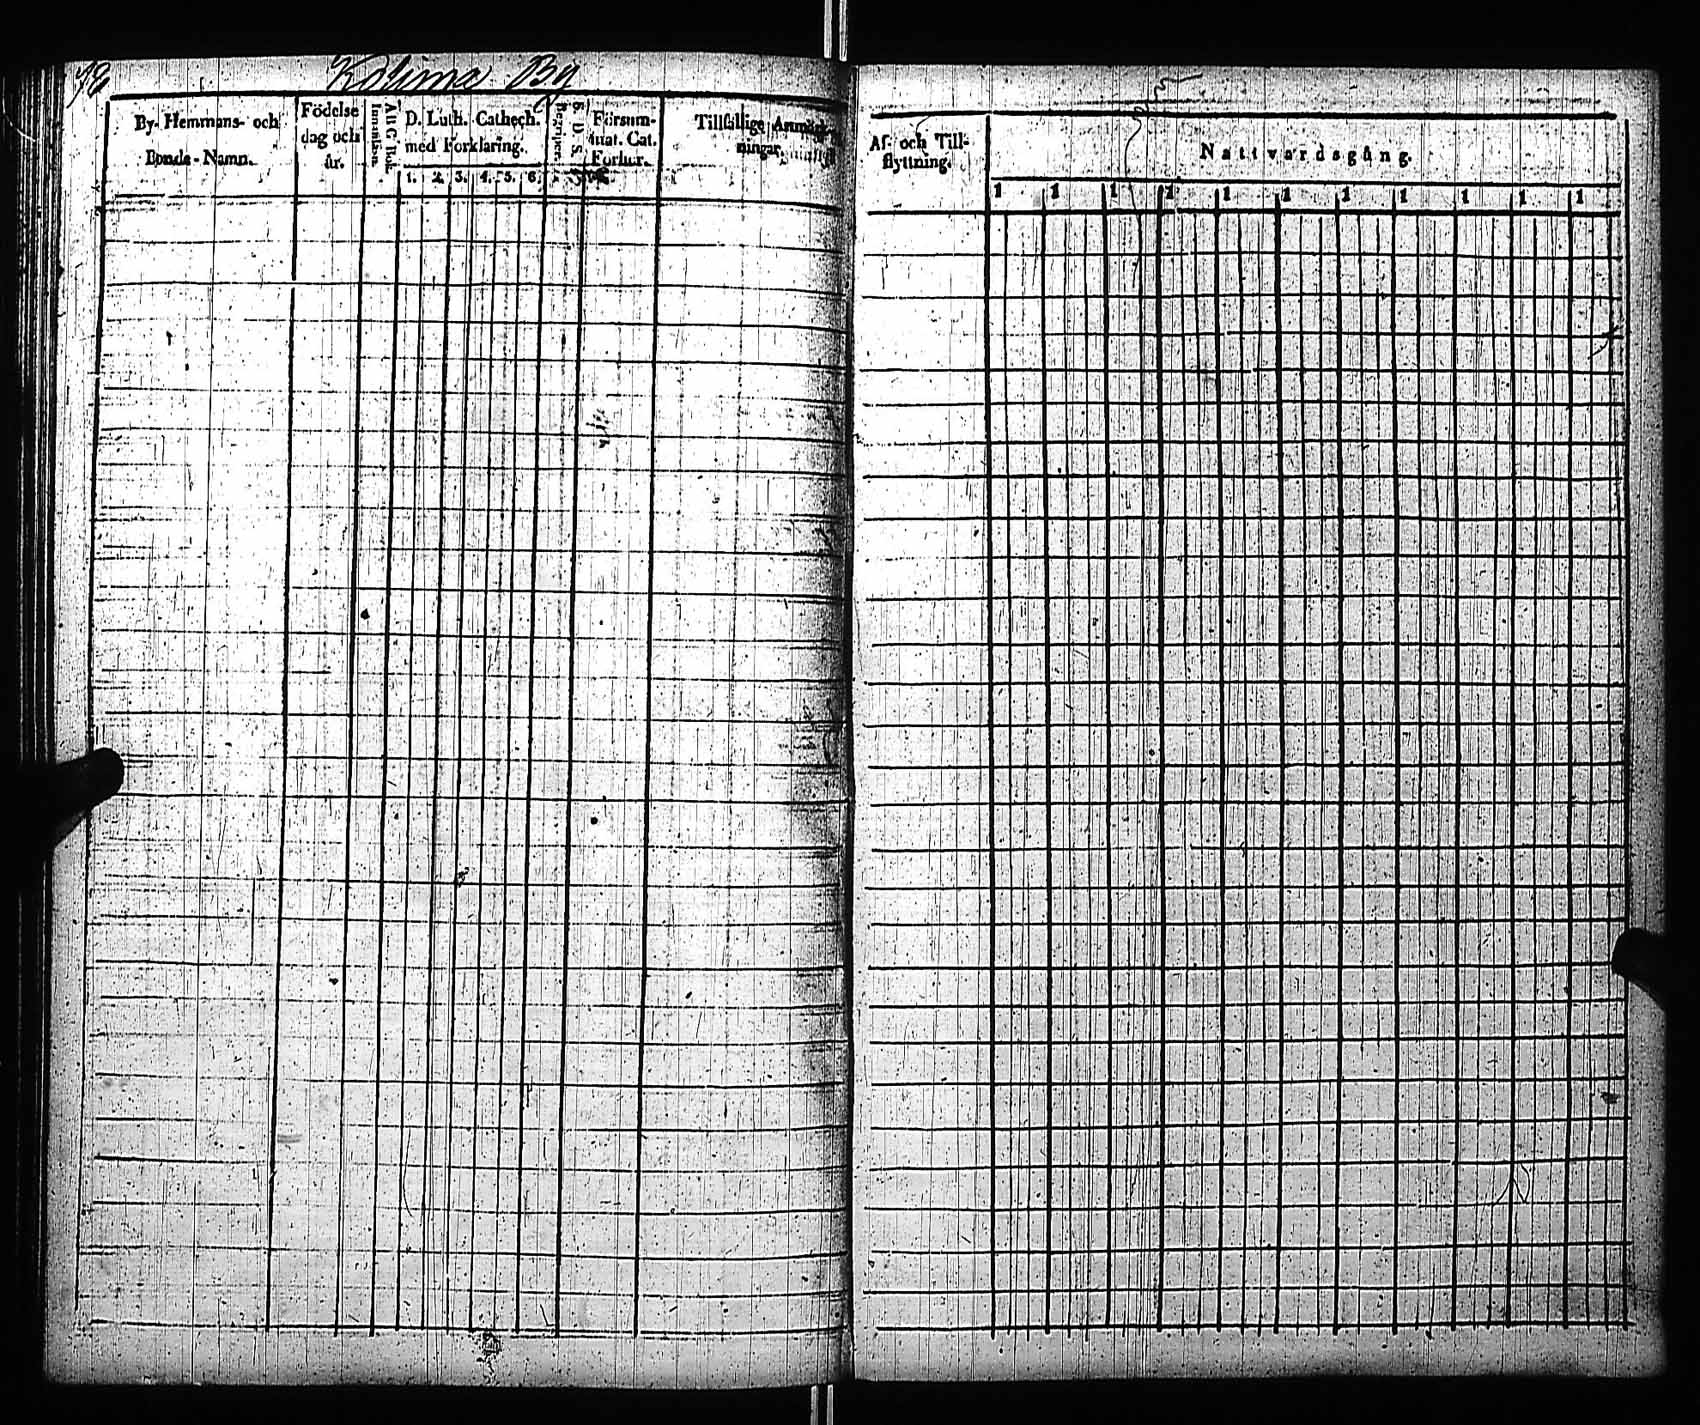 Kolima By
By- Hemmans- och
Bonde-Namn.
Födelse
dag och
år.
A B C Bok.
Innantill.
D. Luth. Cathech.
med Förklaring.
1. 2. 3. 4. 5. 6.
Begriper.
Försum-
mat. Cat.
Förhör.
Tillfällige Anmärk-
ningar.
Af- och Till-
flyttning.
Nattvardsgång.
1 1 1 1 1 1 1 1 1 1 1